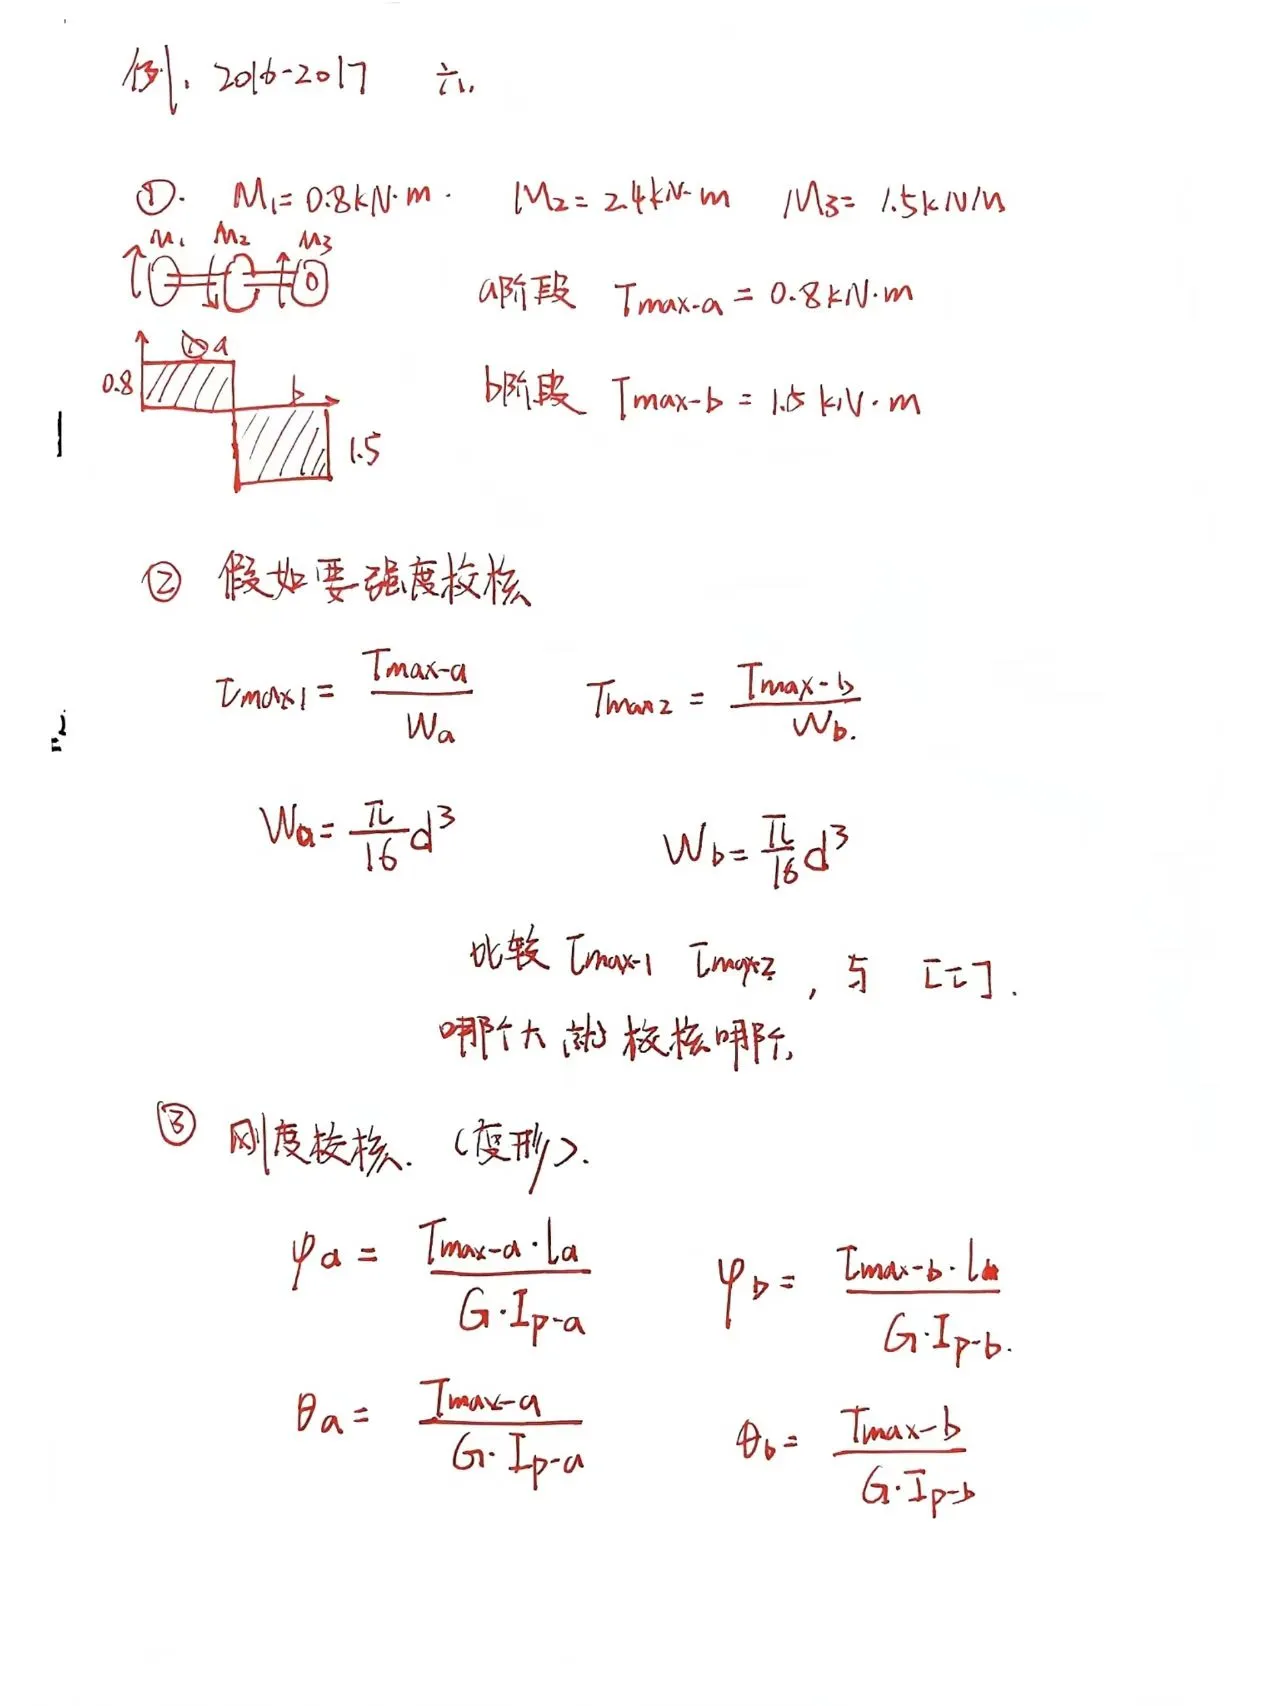 例. 2016-2017 六.
①. M₁=0.8kN·m. M₂=2.4kN·m M₃=1.5kN/m
M₁ M₂ M₃
a阶段 Tmax-a = 0.8kN·m
a
0.8 b
b阶段 Tmax-b = 1.5kN·m
1.5
② 假如要强度校核
τmax1 = Tmax-a / Wa Tmax2 = Tmax-b / Wb.
Wa = π/16 d³ Wb = π/16 d³
比较 τmax-1 τmax2, 与 [τ].
哪个大 校核哪个,
③ 刚度校核. (变形).
φa = Tmax-a·la / G·Ip-a φb = Tmax-b·l / G·Ip-b.
θa = Tmax-a / G·Ip-a θb = Tmax-b / G·Ip-b